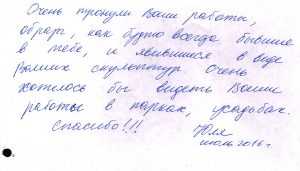 Очень тронули Ваши работы,
образ, как будто всегда бывшие
в тебе, и явившиеся в виде
Ваших скульптур. Очень
хотелось бы видеть Ваши
работы в парках, усадьбах.
Спасибо!!! Юля
июль 2016 г.